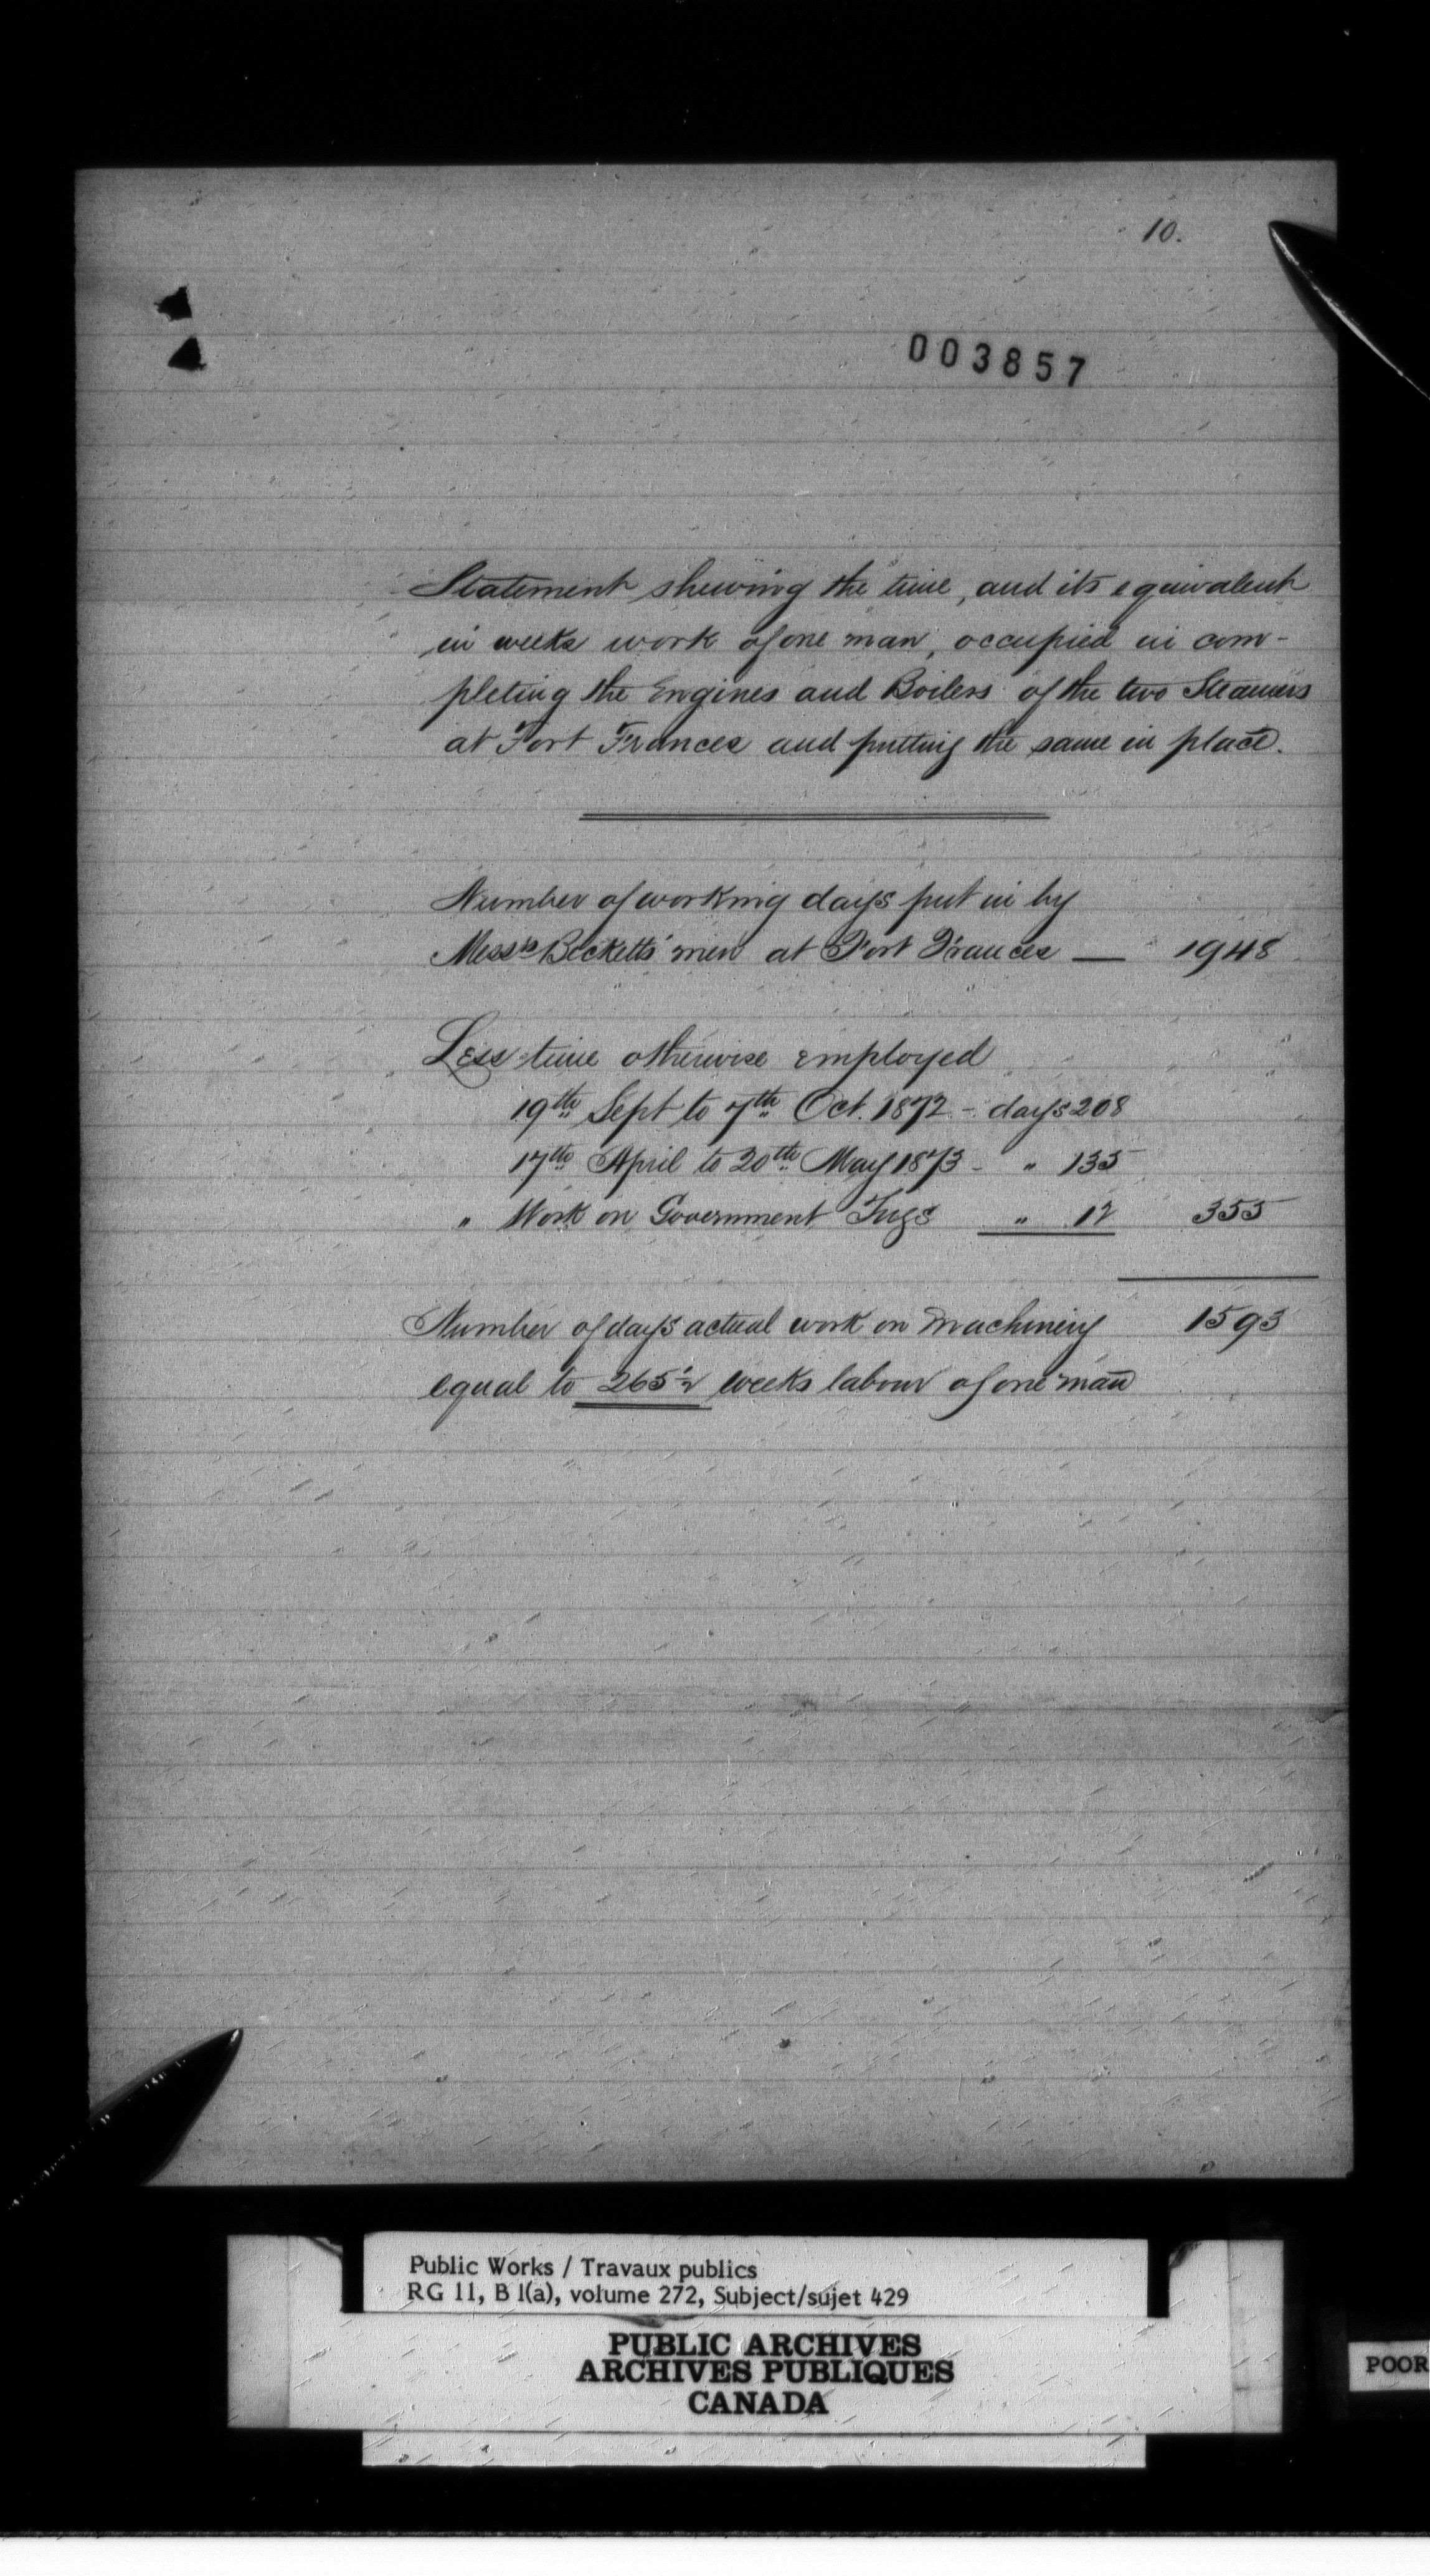 10.
003857
Statement shewing the time, and its equivalent
in weeks work of one man, occupied in com-
pleting the Engines and Boilers of the two Steamers
at Fort Frances and putting the same in place.
Number of working days put in by
Messrs Becketts' men at Fort Frances — 1948
Less time otherwise employed
19th Sept to 7th Oct. 1872 - days 208
17th April to 20th May 1873 - " 135
" Work on Government Tugs " 12 355
Number of days actual work on Machinery 1593
equal to 265½ weeks labour of one man
Public Works / Travaux publics
RG 11, B 1(a), volume 272, Subject/sujet 429
PUBLIC ARCHIVES
ARCHIVES PUBLIQUES
CANADA
POOR